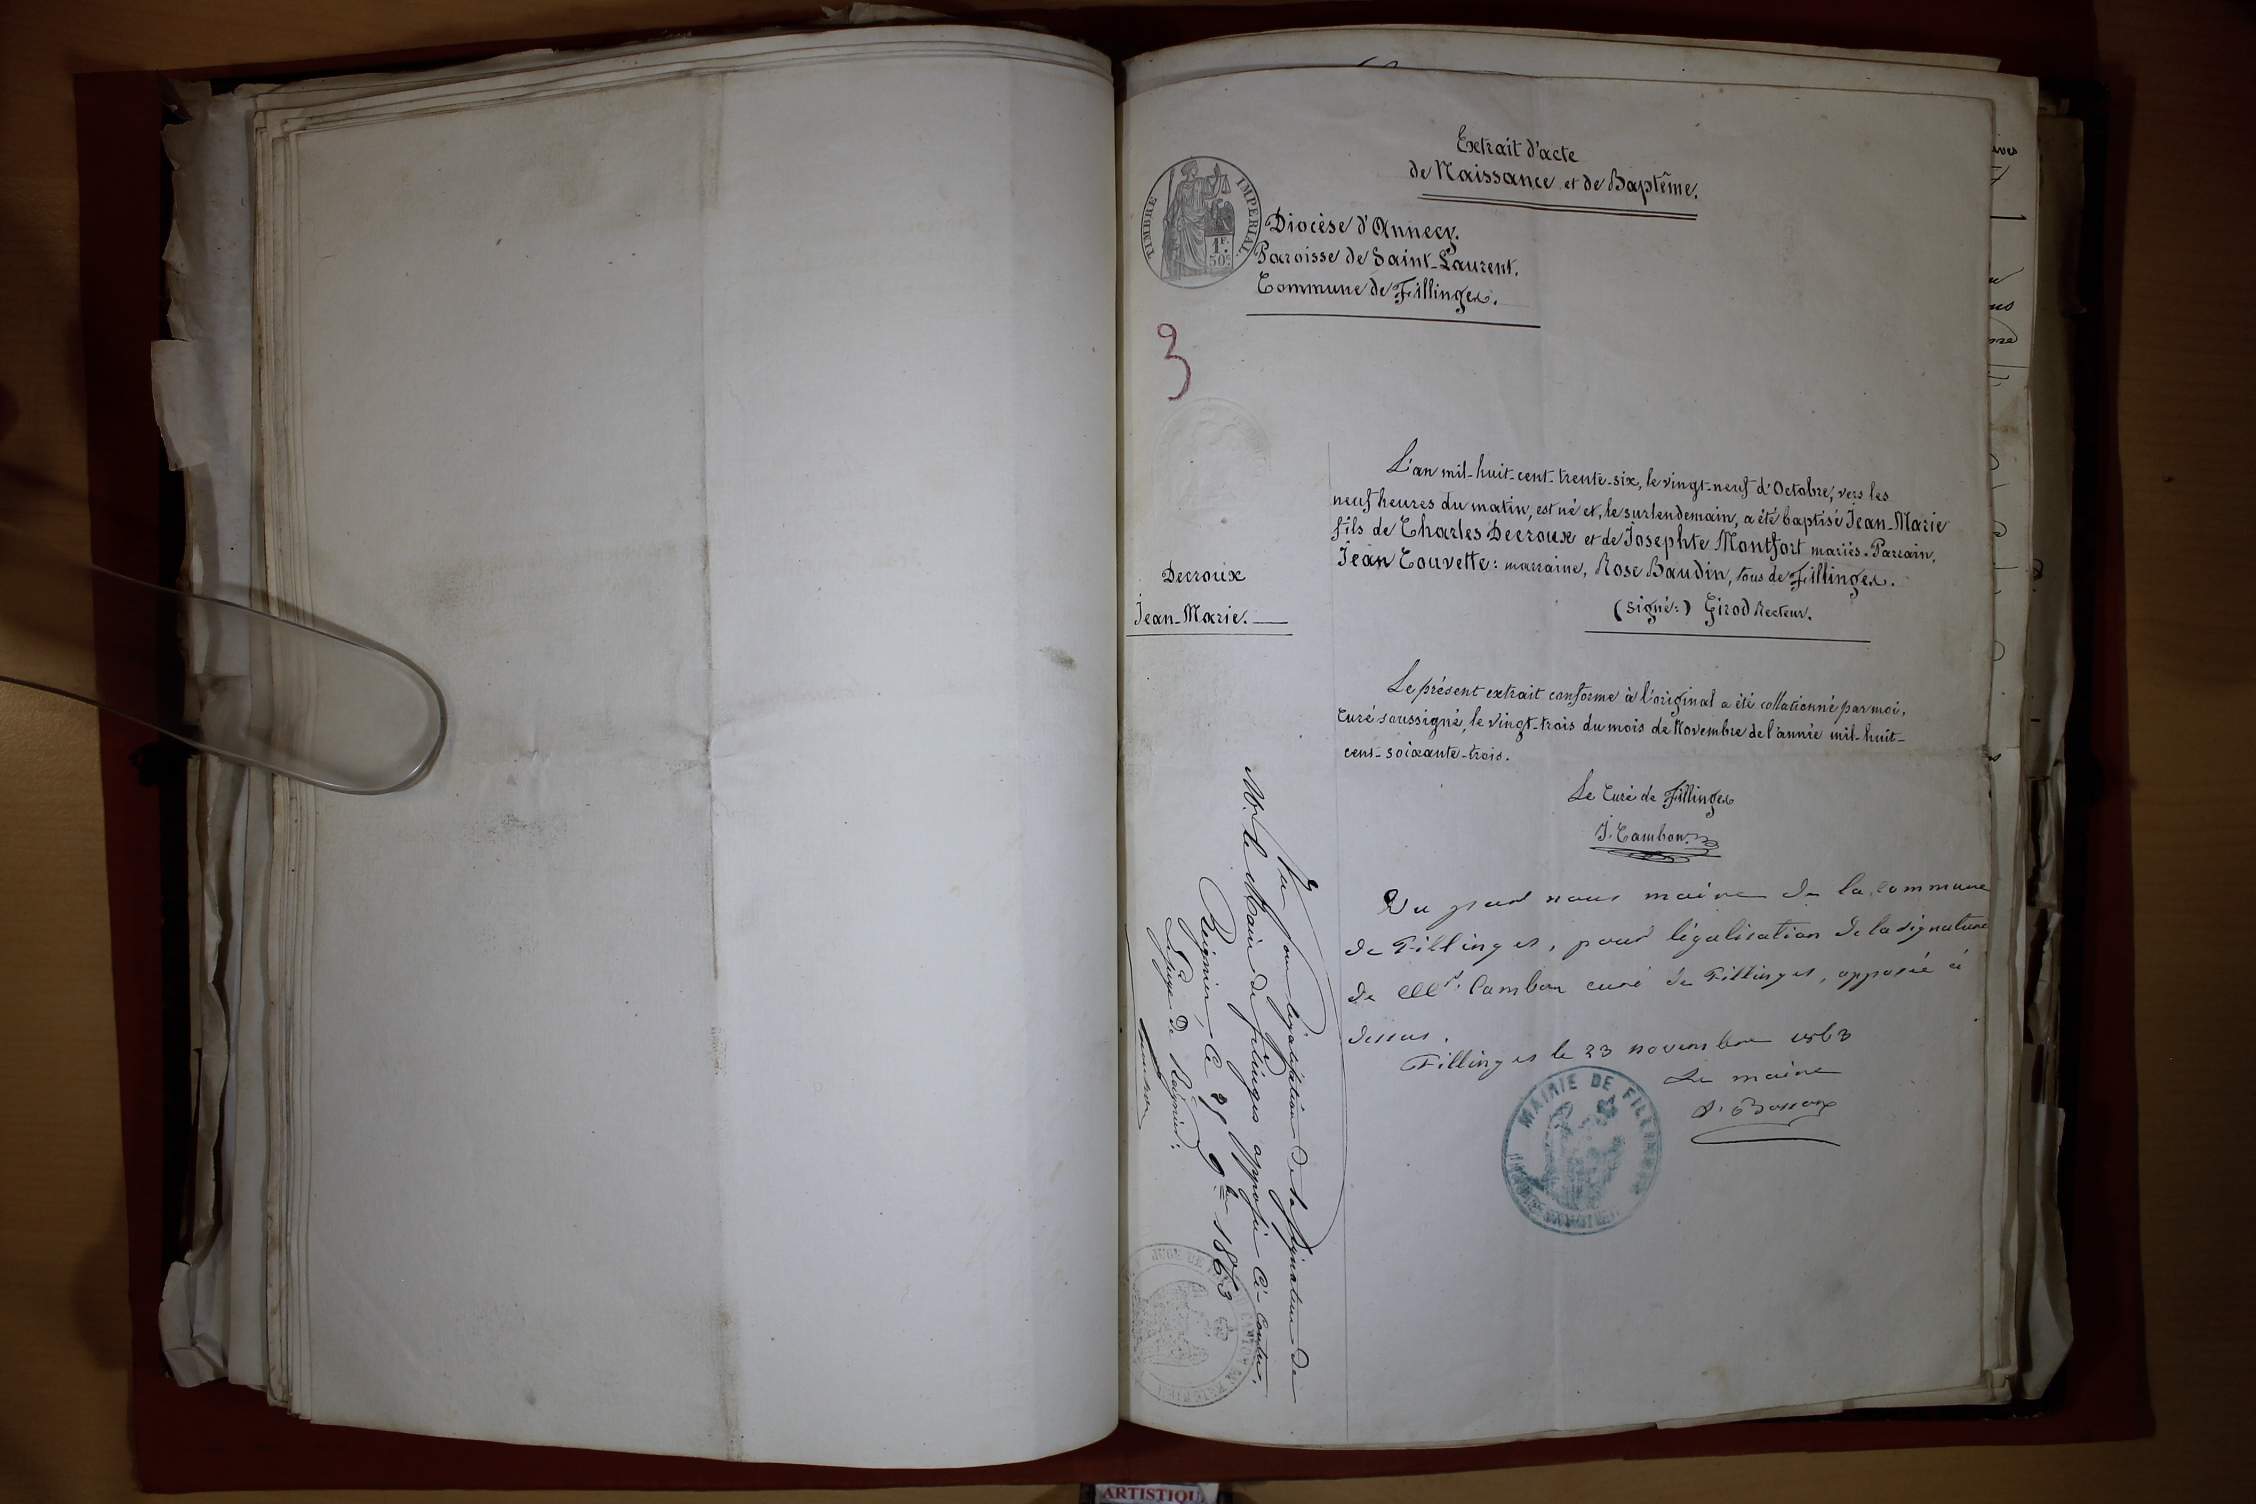 Extrait d'acte
de Naissance et de Baptême.
TIMBRE IMPERIAL.
1F.
50c
Diocèse d'Annecy.
Paroisse de Saint-Laurent.
Commune de Fillinges.
3
L'an mil-huit-cent-trente-six, le vingt-neuf d'Octobre, vers les
neuf heures du matin, est né et, le surlendemain, a été baptisé Jean-Marie
fils de Charles Decroux et de Josephte Montfort mariés. Parrain,
Jean Couvette: marraine, Rose Baudin, tous de Fillinges.
(signé:) Girod Recteur.
Decroux
Jean-Marie.
Le présent extrait conforme à l'original a été collationné par moi,
Curé soussigné, le vingt-trois du mois de Novembre de l'année mil-huit-
cens-soixante-trois.
Le Curé de Fillinges
J. Cambon.
Vu par nous maire de la commune
de Fillinges, pour légalisation de la signature
de Mr. Cambon curé de Fillinges, apposée ci
dessus.
Fillinges le 23 novembre 1863
Le maire
MAIRIE DE FILLINGES
Vu pour légalisation de la signature de
Mr. le Maire de fillinges apposée ci-contre,
Reignier, le 25 9bre 1863
Le Juge de Reignier:
ARTISTIQU